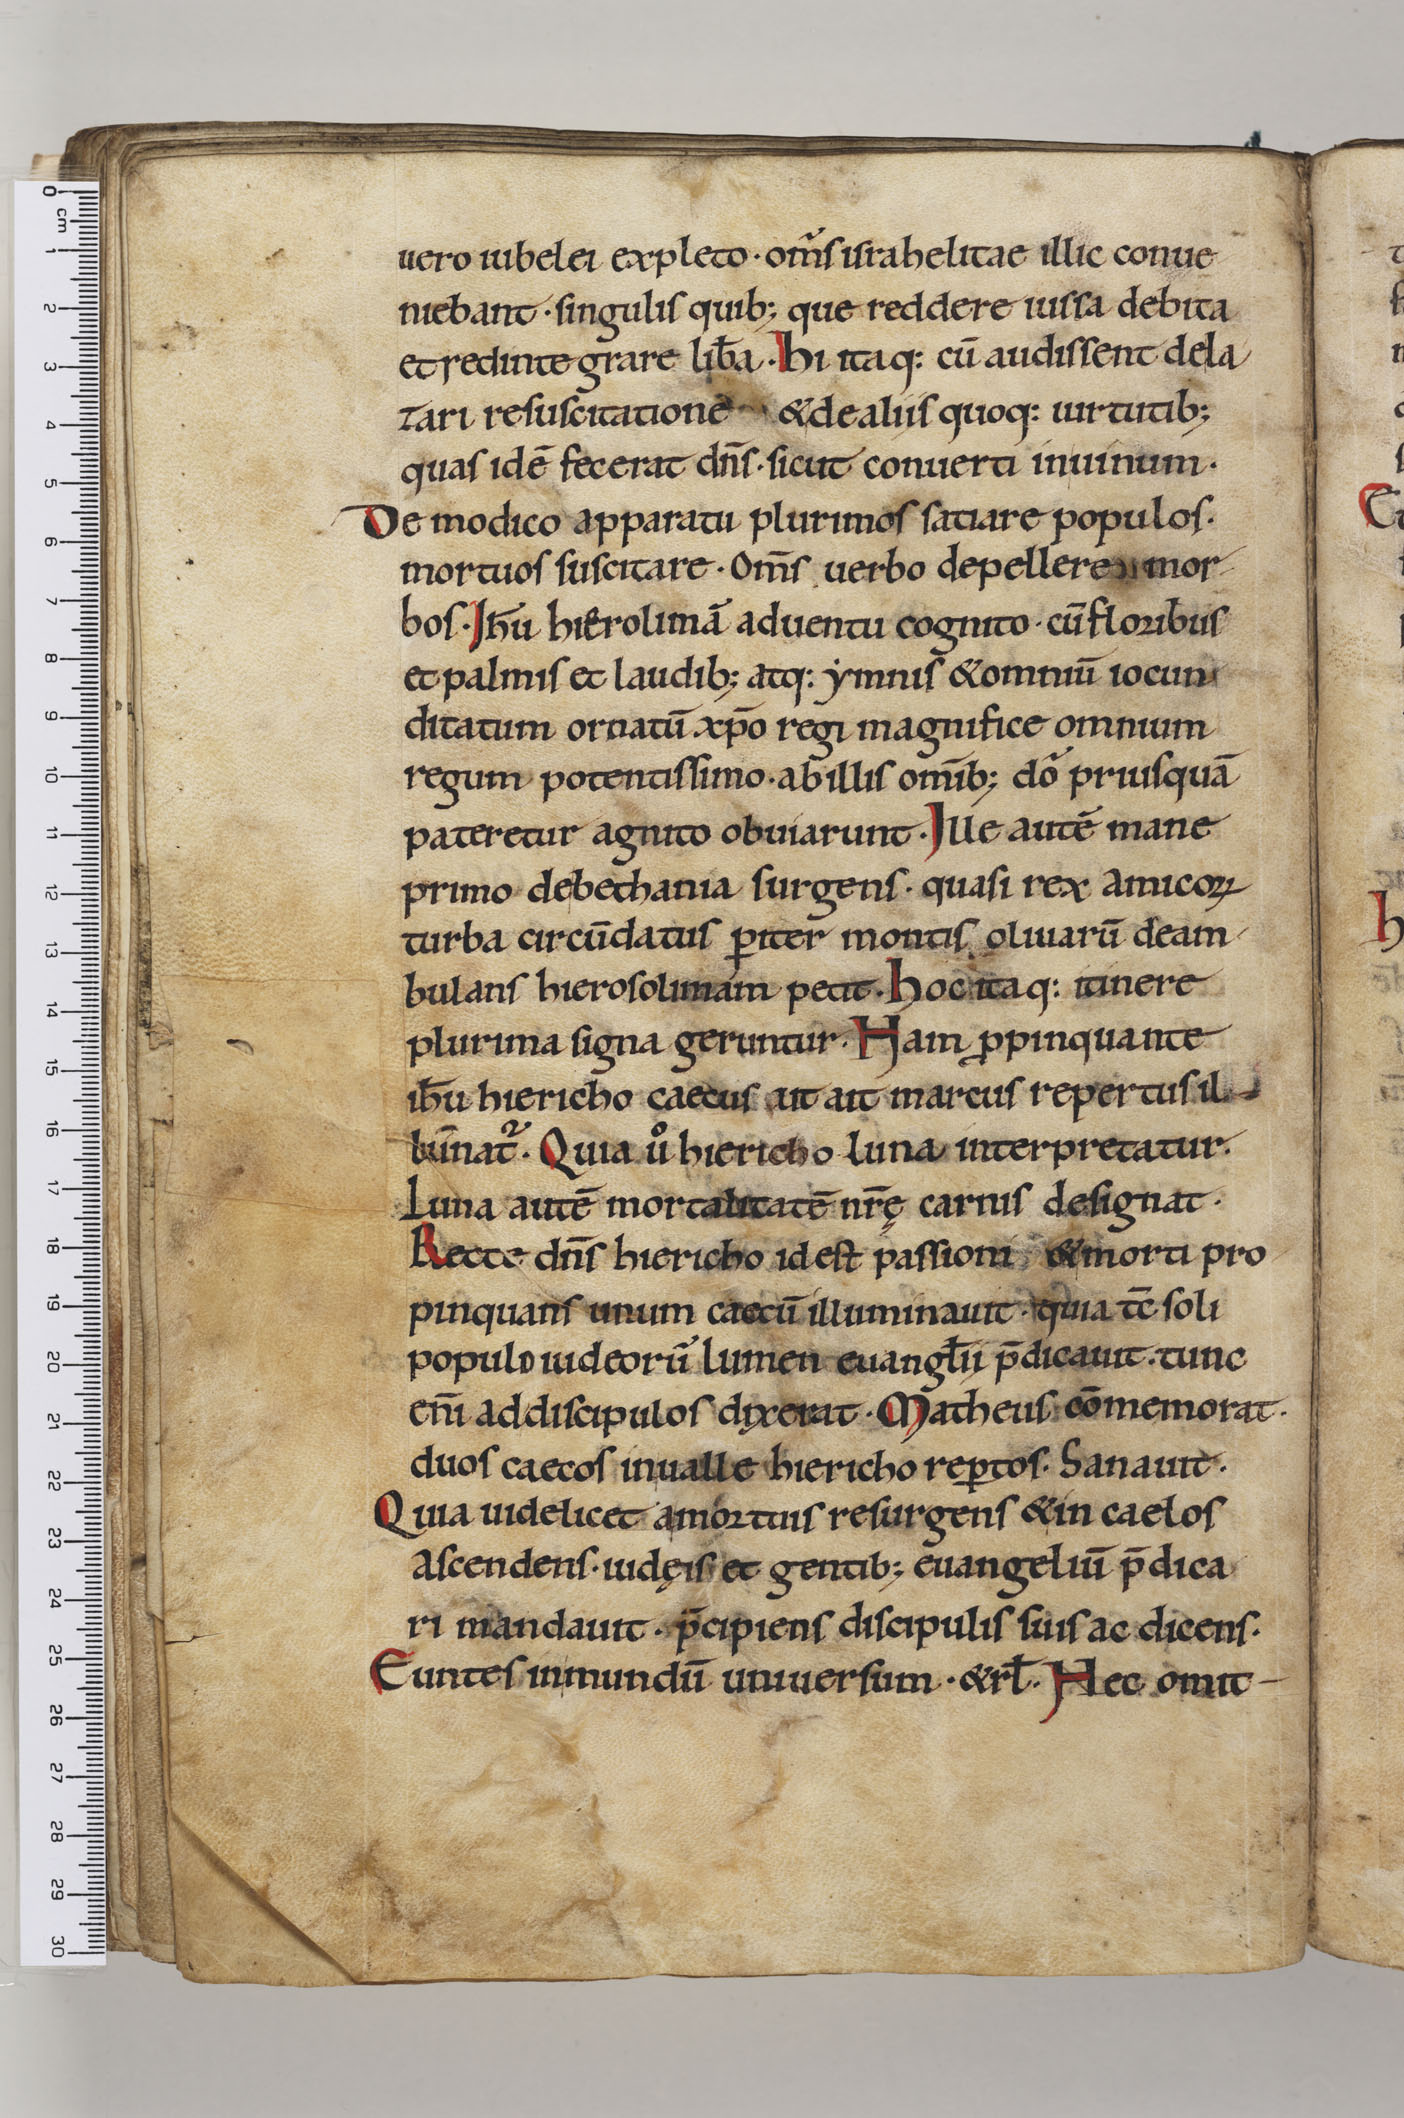 uero iubelei expleto · om̃s israhelitae illic conue
niebant · singulis quib; que reddere iussa debita
et redintegrare lib̄a · hi itaq: cū audissent dela
zari resuscitatione & de aliis quoq: uirtutib;
quas idē fecerat dn̄s · sicut conuerti in uinum ·
De modico apparatu plurimos satiare populos ·
mortuos suscitare · Om̄s uerbo depellere mor
bos · Ih̄u hierolimā aduentu cognito · cū floribus
et palmis et laudib; atq: ymnis & omniū iocun
ditatum ornatū xp̄o regi magnifice omnium
regum potentissimo · ab illis om̄ib; dō priusquā
pateretur agnito obuiarunt · Ille autē mane
primo de bethania surgens · quasi rex amicoꝝ
turba circūdatus ꝑiter montis oliuarū deam
bulans hierosolimam petit · hoc itaq: itinere
plurima signa geruntur · Nam ꝓpinquante
ih̄u hiericho caecus ut ait marcus repertus il
lūnat᷑ · Quia uͦ hiericho luna interpretatur ·
Luna autē mortalitatē nr̄ę carnis designat ·
Recte dn̄s hiericho id est passioni & morti pro
pinquans unum caecū illuminauit · quia tc̄ soli
populo iudeorū lumen euangł̄ii p̄dicauit · tunc
en̄i ad discipulos dixerat · Matheus cōmemorat ·
duos caecos in ualle hiericho reꝑtos · Sanauit ·
Quia uidelicet a mortuis resurgens & in caelos
ascendens · iudęis et gentib; euangeliū p̄dica
ri mandauit · p̄cipiens discipulis suis ac dicens ·
Euntes in mundū uniuersum · & rł · Nec omit
0 cm 1 2 3 4 5 6 7 8 9 10 11 12 13 14 15 16 17 18 19 20 21 22 23 24 25 26 27 28 29 30